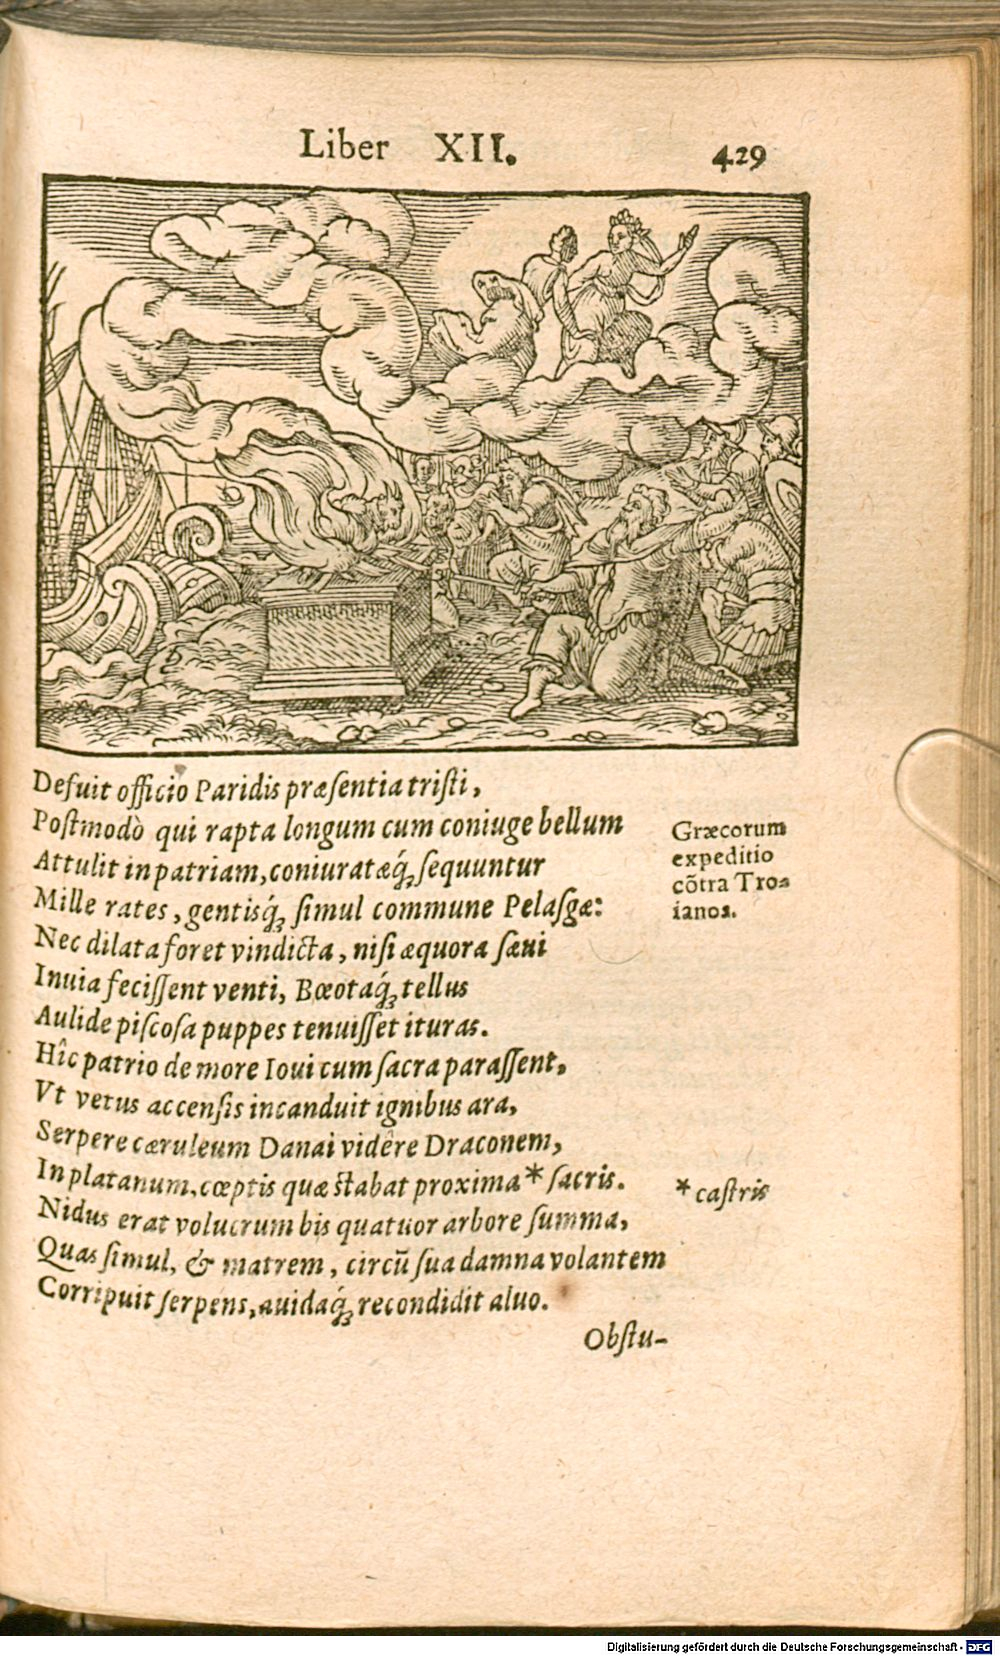 Liber XII.
429
Defuit officio Paridis præsentia tristi,
Postmodò qui rapta longum cum coniuge bellum
Attulit in patriam, coniuratæq́; sequuntur
Mille rates, gentisq́; simul commune Pelasgæ:
Nec dilata foret vindicta, nisi æquora sæui
Inuia fecissent venti, Bœotaq́; tellus
Aulide piscosa puppes tenuisset ituras.
Hîc patrio de more Ioui cum sacra parassent,
Vt vetus accensis incanduit ignibus ara,
Serpere cæruleum Danai vidêre Draconem,
In platanum, cœptis quæ stabat proxima * sacris.
Nidus erat volucrum bis quatuor arbore summa,
Quas simul, & matrem, circũ sua damna volantem
Corripuit serpens, auidaq́; recondidit aluo.
Obstu-
Græcorum
expeditio
cõtra Tro-
ianos.
* castris
Digitalisierung gefördert durch die Deutsche Forschungsgemeinschaft - DFG